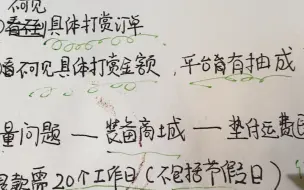 不可见
看不到具体打赏订单
看不可见具体打赏金额，平台育有抽成
量问题 — 装备商城 — 垫付运费
退款需20个工作日（不包括节假日）